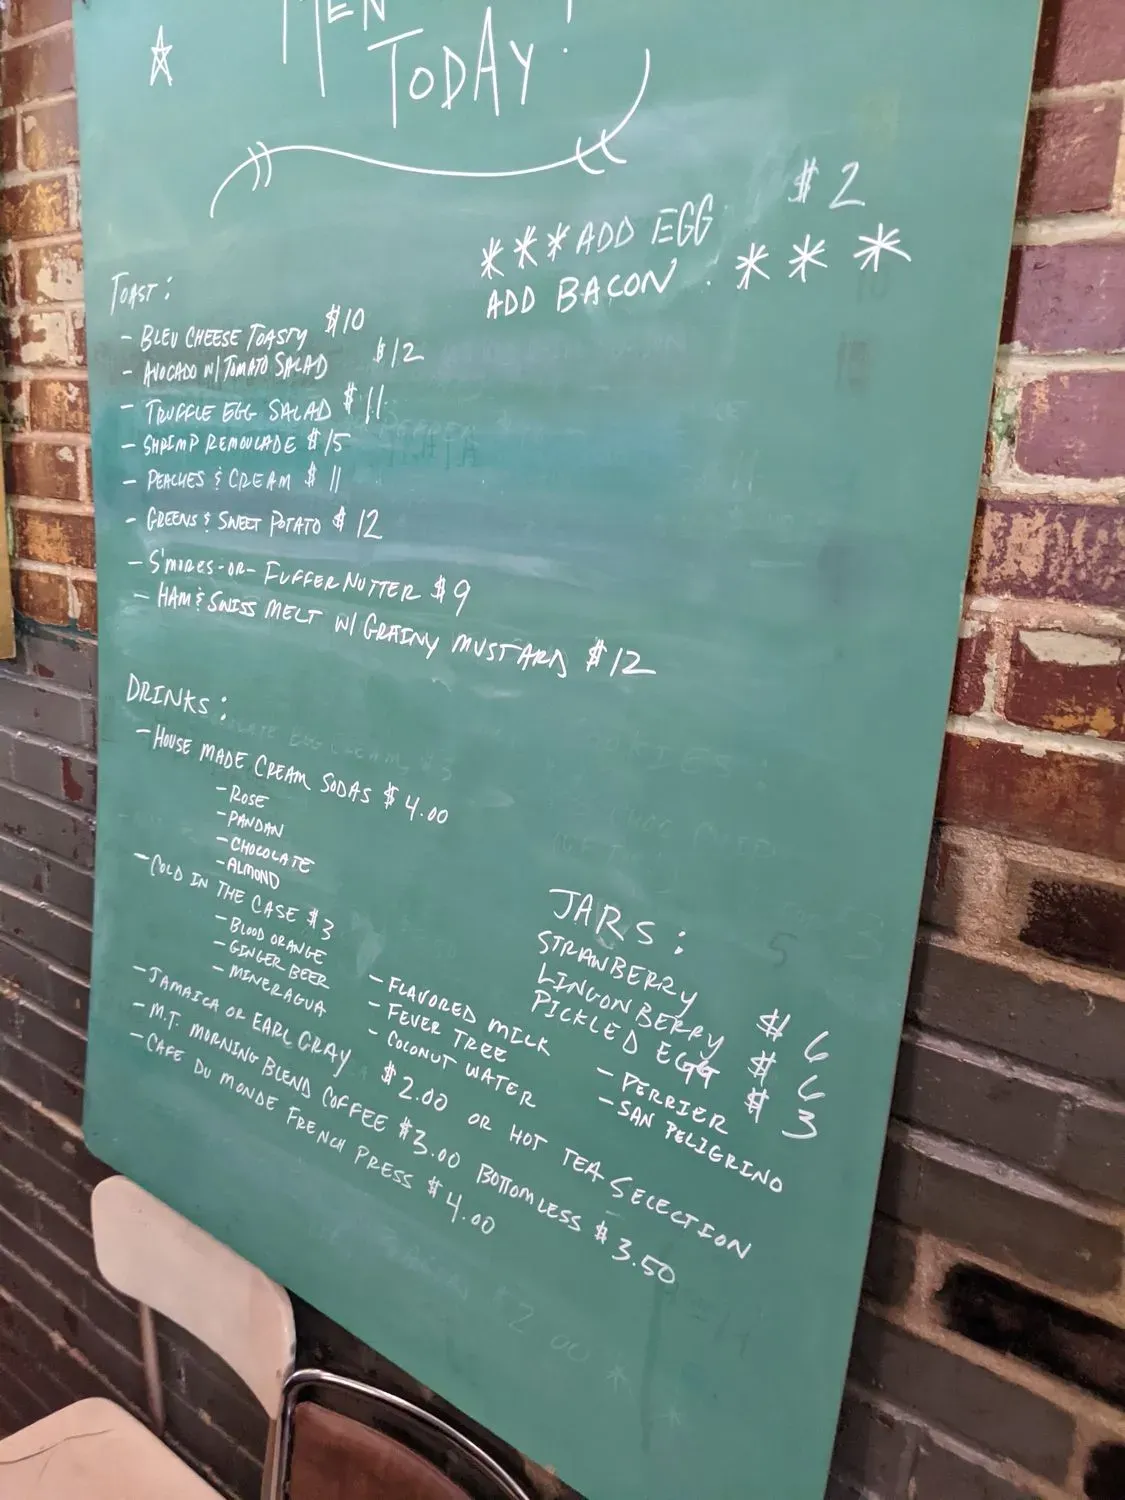 MEN
TODAY!
***ADD EGG $2
ADD BACON. ***
TOAST:
- BLEU CHEESE TOASTY $10
- AVOCADO W/ TOMATO SALAD $12
- TRUFFLE EGG SALAD $11
- SHRIMP REMOULADE $15
- PEACHES & CREAM $11
- GREENS & SWEET POTATO $12
- S'MORES-OR-FUFFERNUTTER $9
- HAM & SWISS MELT W/ GRAINY MUSTARD $12
DRINKS:
- HOUSE MADE CREAM SODAS $4.00
- ROSE
- PANDAN
- CHOCOLATE
- ALMOND
- COLD IN THE CASE $3
- BLOOD ORANGE
- GINGER BEER
- MINERAGUA
- FLAVORED MILK
- FEVER TREE
- COCONUT WATER
- PERRIER
- SAN PELIGRINO
- JAMAICA OR EARL GRAY $2.00 OR HOT TEA SELECTION
- M.T. MORNING BLEND COFFEE $3.00 BOTTOMLESS $3.50
- CAFE DU MONDE FRENCH PRESS $4.00
JARS:
STRAWBERRY $6
LINGONBERRY $6
PICKLED EGG $3